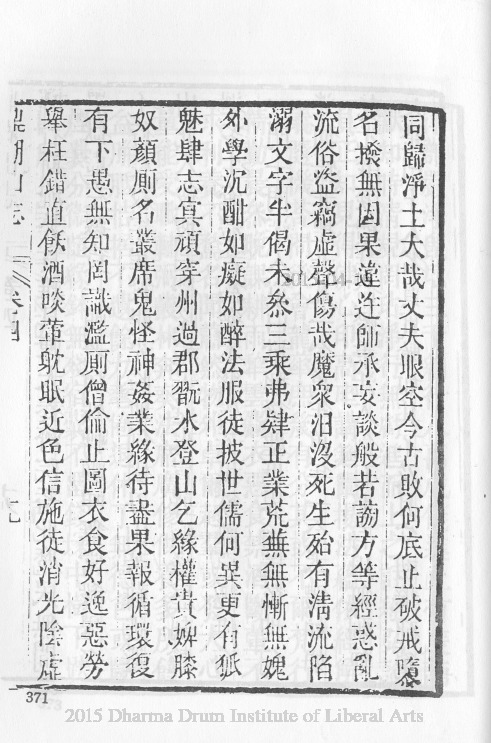 同歸淨土大哉丈夫眼空今古敗何底止破戒墮
名撥無因果違迕師承妄談般若謗方等經惑亂
流俗盜竊虛聲傷哉魔衆汨沒死生殆有淸流陷
溺文字半偈未參三乘弗肄正業荒蕪無慚無媿
外學沉酣如癡如醉法服徒披世儒何異更有狐
魅肆志寘頑穿州過郡翫水登山乞緣權貴婢膝
奴顏廁名叢席鬼怪神姦業緣待盡果報循環復
有下愚無知罔識濫廁僧倫止圖衣食好逸惡勞
舉枉錯直飫酒啖葷躭眠近色信施徒消光陰虛
鼎湖山志 卷四
371
2015 Dharma Drum Institute of Liberal Arts